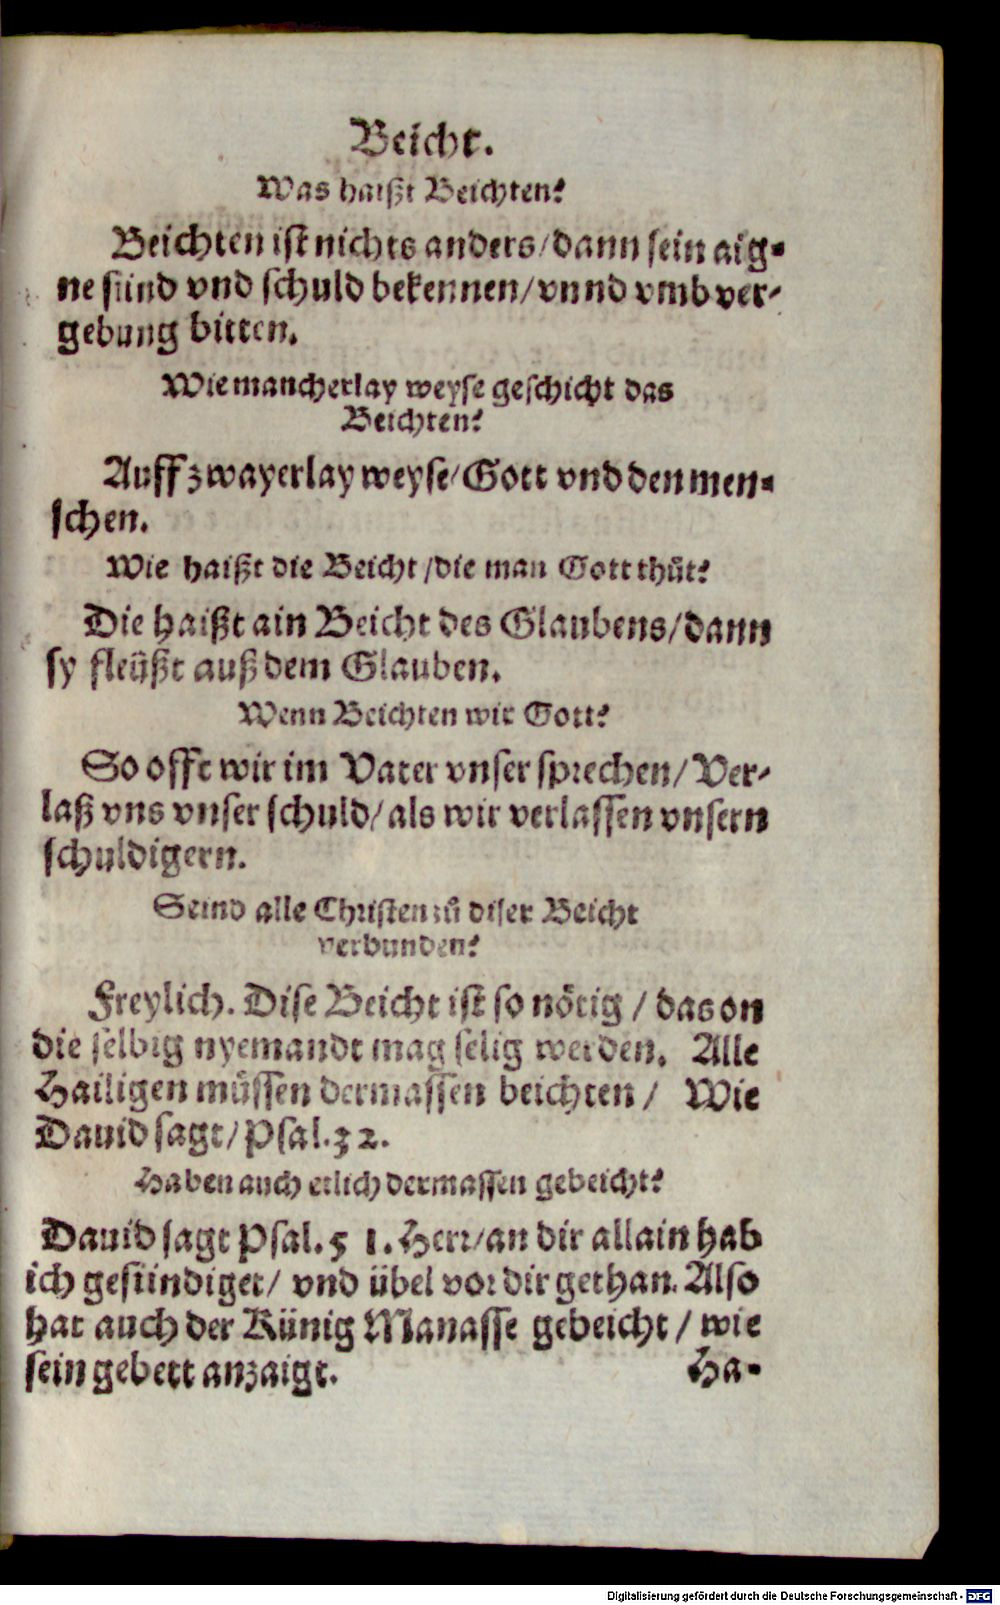 Beicht.
Was haißt Beichten?
Beichten ist nichts anders/dann sein aig-
ne sünd vnd schuld bekennen/vnnd vmb ver-
gebung bitten.
Wie mancherlay weyse geschicht das
Beichten?
Auff zwayerlay weyse/Gott vnd den men-
schen.
Wie haißt die Beicht/die man Gott thůt?
Die haißt ain Beicht des Glaubens/dann
sy fleüßt auß dem Glauben.
Wenn Beichten wir Gott?
So offt wir im Vater vnser sprechen/Ver-
laß vns vnser schuld/als wir verlassen vnsern
schuldigern.
Seind alle Christen zů diser Beicht
verbunden?
Freylich. Dise Beicht ist so nötig / das on
die selbig nyemandt mag selig werden. Alle
Hailigen müssen dermassen beichten / Wie
Dauid sagt/Psal.32.
Haben auch etlich dermassen gebeicht?
Dauid sagt Psal.51. Herr/an dir allain hab
ich gesündiget/ vnd übel vor dir gethan. Also
hat auch der Künig Manasse gebeicht / wie
sein gebett anzaigt.
Ha-
Digitalisierung gefördert durch die Deutsche Forschungsgemeinschaft - DFG